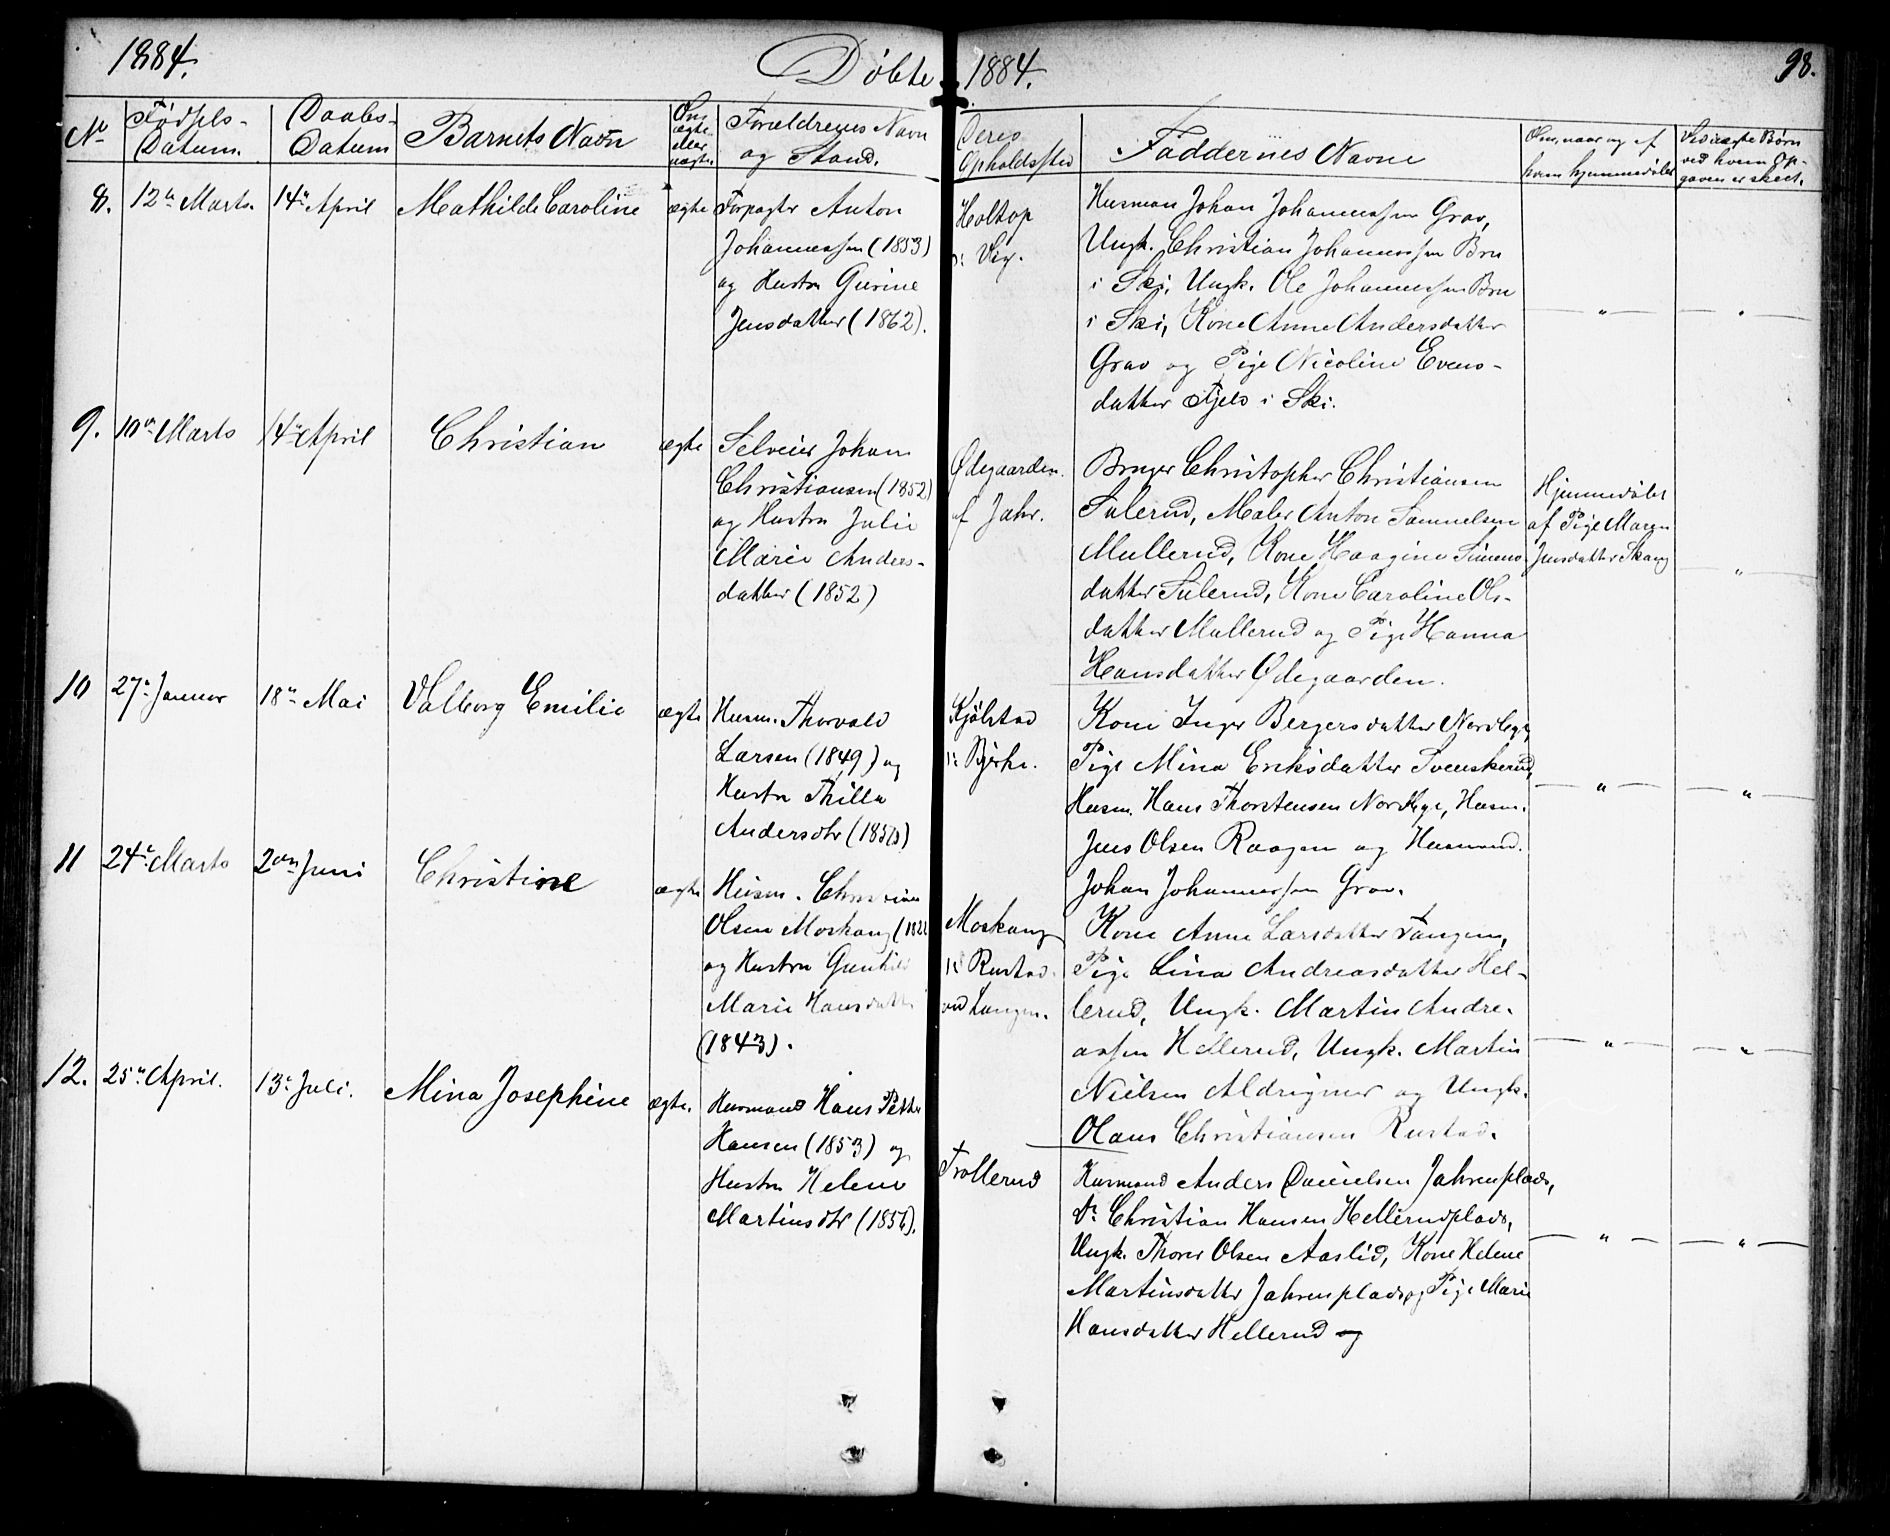 1884.
Døbte
1884.
98.
No
Fødsels-
Datum.
Daabs-
Datum
Barnets Navn
Om
ægte
eller
uægte.
Forældrenes Navn
og Stand.
Deres
Opholdssted
Faddernes Navne
Om, naar og af
hvem hjemmedøbt
Ved uægte Børn
ved hvem Op-
gaven er skeet.
8.
12te Marts.
14de April
Mathilde Caroline
ægte
Forpagter Anton
Johannessen (1853)
og Hustru Gurine
Jensdatter (1862).
Holtop
i Vig.
Husmand Johan Johannessen Grav,
Ungk. Christian Johannessen Bru
i Ski, Ungk. Ole Johannessen Bru
i Ski, Kone Anne Andersdatter
Grav og Pige Nicoline Evens-
datter Fjeld i Ski.
9.
10de Marts
14de April
Christian
ægte
Selveier Johan
Christiansen (1852)
og Hustru Julie
Marie Anders-
datter (1852)
Ødegaarden
af Jahr.
Bruger Christopher Christiansen
Sulerud, Maler Anton Samuelsen
Mullerud, Kone Haagine Simens-
datter Sulerud, Kone Caroline Ols-
datter Mullerud og Pige Hanna
Hansdatter Ødegaarden.
Hjemmedøbt
af Pige Maren
Jensdatter Skaug
10
27de Januar
18de Mai
Valborg Emilie
ægte
Husm. Thorvald
Larsen (1849) og
Hustru Thilla
Andersdtr
Kjølstad
i Bjerke.
Kone Inger Bergersdatter Nordbye,
Pige Mina Eriksdatter Svenskerud,
Husm. Hans Thorstensen Nordbye, Husm.
Jens Olsen Raagen og Husmand.
Johan Johannessen Grav.
11
24de Marts
2den Juni
Christine
ægte
Husm. Christian
Olsen Moskaug (1822
og Hustru Gunhild
Marie Hansdatter
(1843).
Moskaug
i Rustad
ved Langen.
Kone Anne Larsdatter Tangen,
Pige Lina Andreasdatter Hel-
lerud, Ungk. Martin Andre-
assen Hellerud, Ungk. Martin
Nielsen Aldrigmer og Ungk.
Olaus Christiansen Rustad.
12.
25de April.
13de Juli.
Mina Josephine
ægte.
Husmand Hans Petter
Hansen (1853) og
Hustru Helene
Martinsdtr (1856).
Trollerud
Husmand Anders Danielsen Jahrenplads,
Do Christian Hansen Hellerudplads,
Ungk. Thorer Olsen Aaslid, Kone Helene
Martinsdatter Jahrenplads og Pige Marie
Hansdatter Hellerud og